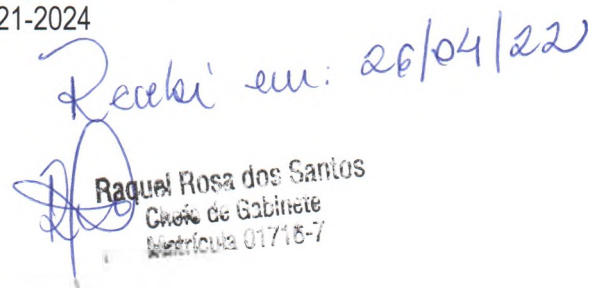 21-2024
Recebi em: 26/04/22
Raquel Rosa dos Santos
Chefe de Gabinete
Matrícula 01716-7